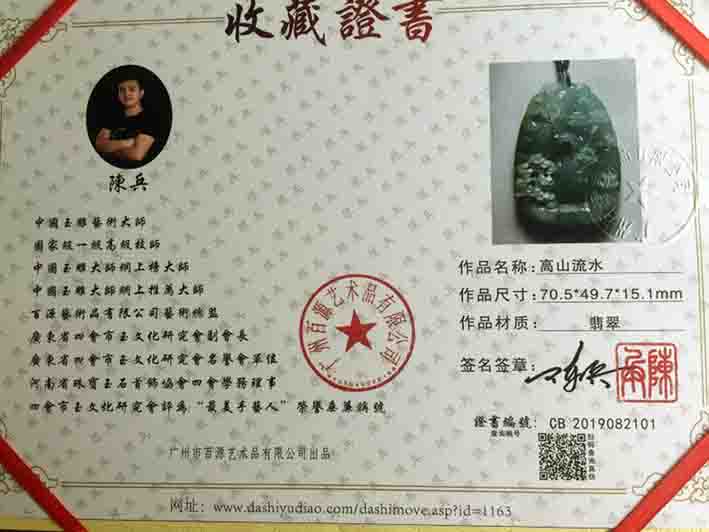 收藏證書
陳兵
中國玉雕藝術大師
國家級一級高級技師
中國玉雕大師網上榜大師
中國玉雕大師網上推薦大師
百源藝術品有限公司藝術總監
廣東省四會市玉文化研究會副會長
廣東省四會市玉文化研究會名譽會單位
河南省珠寶玉石首飾協會四會學務理事
四會市玉文化研究會評爲“最美手藝人”榮譽桑蒂稱號
广州市百源艺术品有限公司出品
广州百源艺术品有限公司
作品名称:高山流水
作品尺寸:70.5*49.7*15.1mm
作品材质: 翡翠
签名签章:
陳兵
證書編號: CB 2019082101
查询编号
扫码查询真伪
网址: www.dashiyudiao.com/dashimove.asp?id=1163